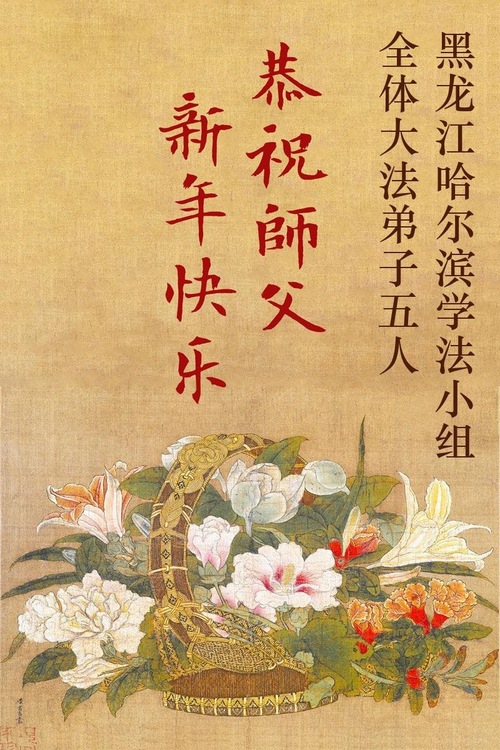 黑龙江哈尔滨学法小组
全体大法弟子五人
恭祝師父
新年快乐